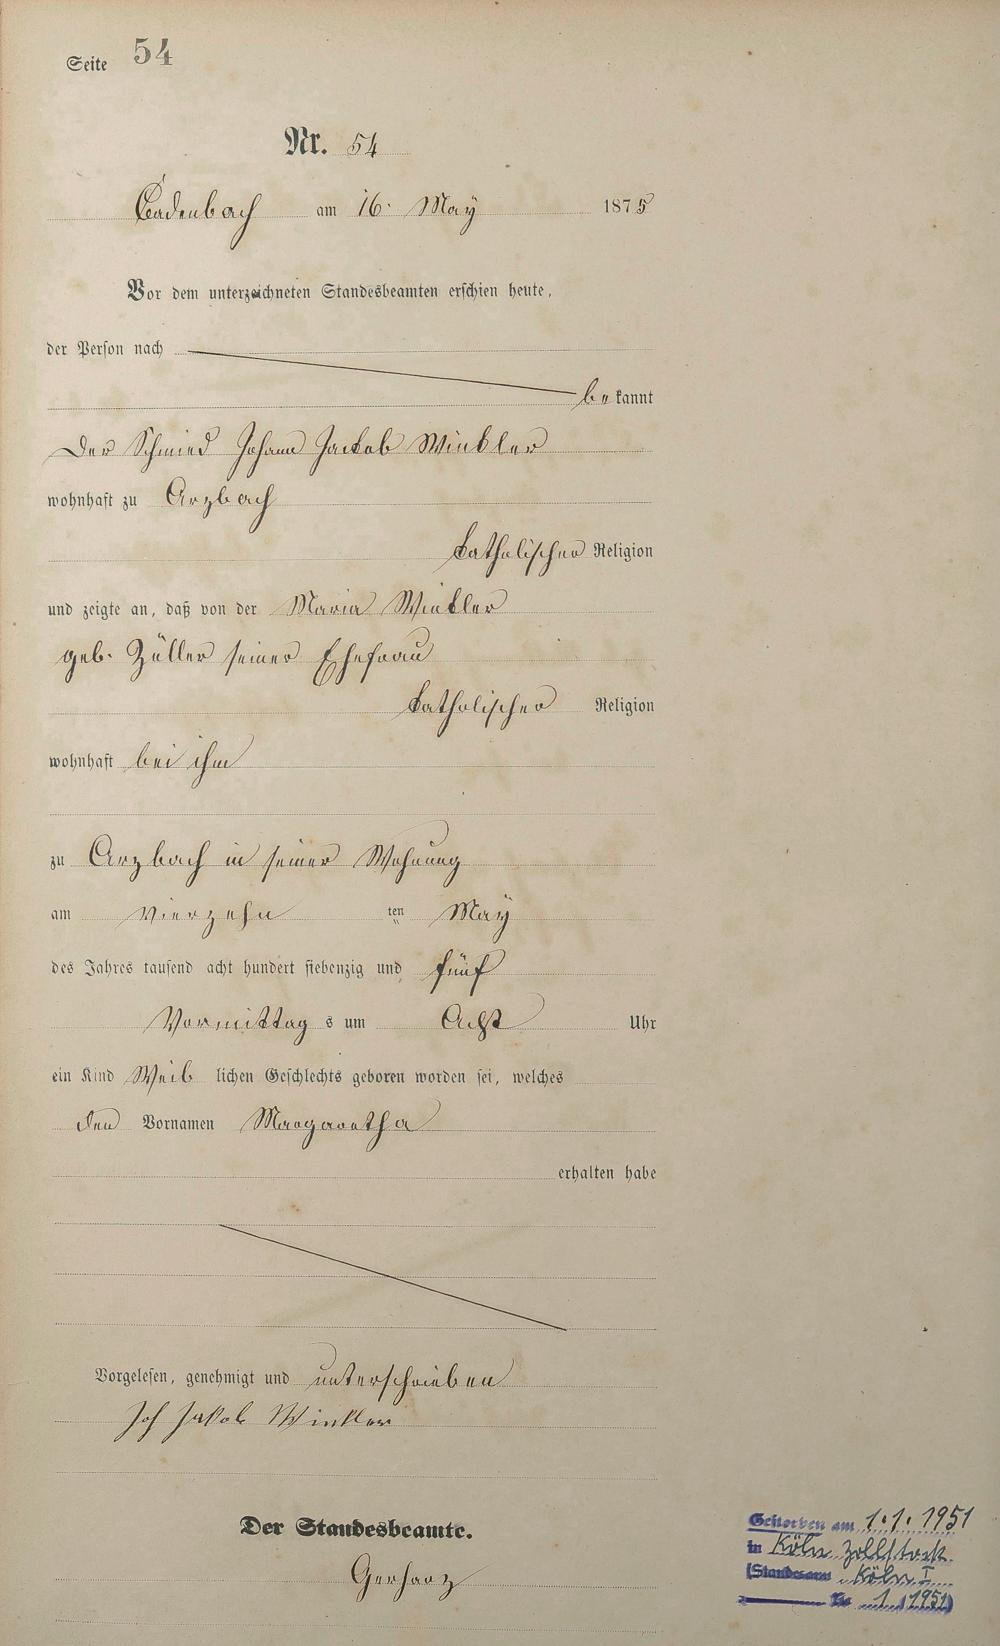 Seite 54
Nr. 54
Cadenbach am 16. May 1875
Vor dem unterzeichneten Standesbeamten erschien heute,
der Person nach
bekannt
Der Schmied Johann Jackob Winkler
wohnhaft zu Arzbach
katholischer Religion
und zeigte an, daß von der Maria Winkler
geb. Züller seiner Ehefrau
katholischer Religion
wohnhaft bei ihm
zu Arzbach in seiner Wohnung
am vierzehn ten May
des Jahres tausend acht hundert siebenzig und fünf
Vormittag s um Acht Uhr
ein Kind Weib lichen Geschlechts geboren worden sei, welches
den Vornamen Margaretha
erhalten habe
Vorgelesen, genehmigt und unterschrieben
Joh Jakob Winkler
Der Standesbeamte.
Gerharz
Gestorben am 1.1.1951
in Köln Zollstock.
(Standesamt Köln I
Nr 1 / 1951)